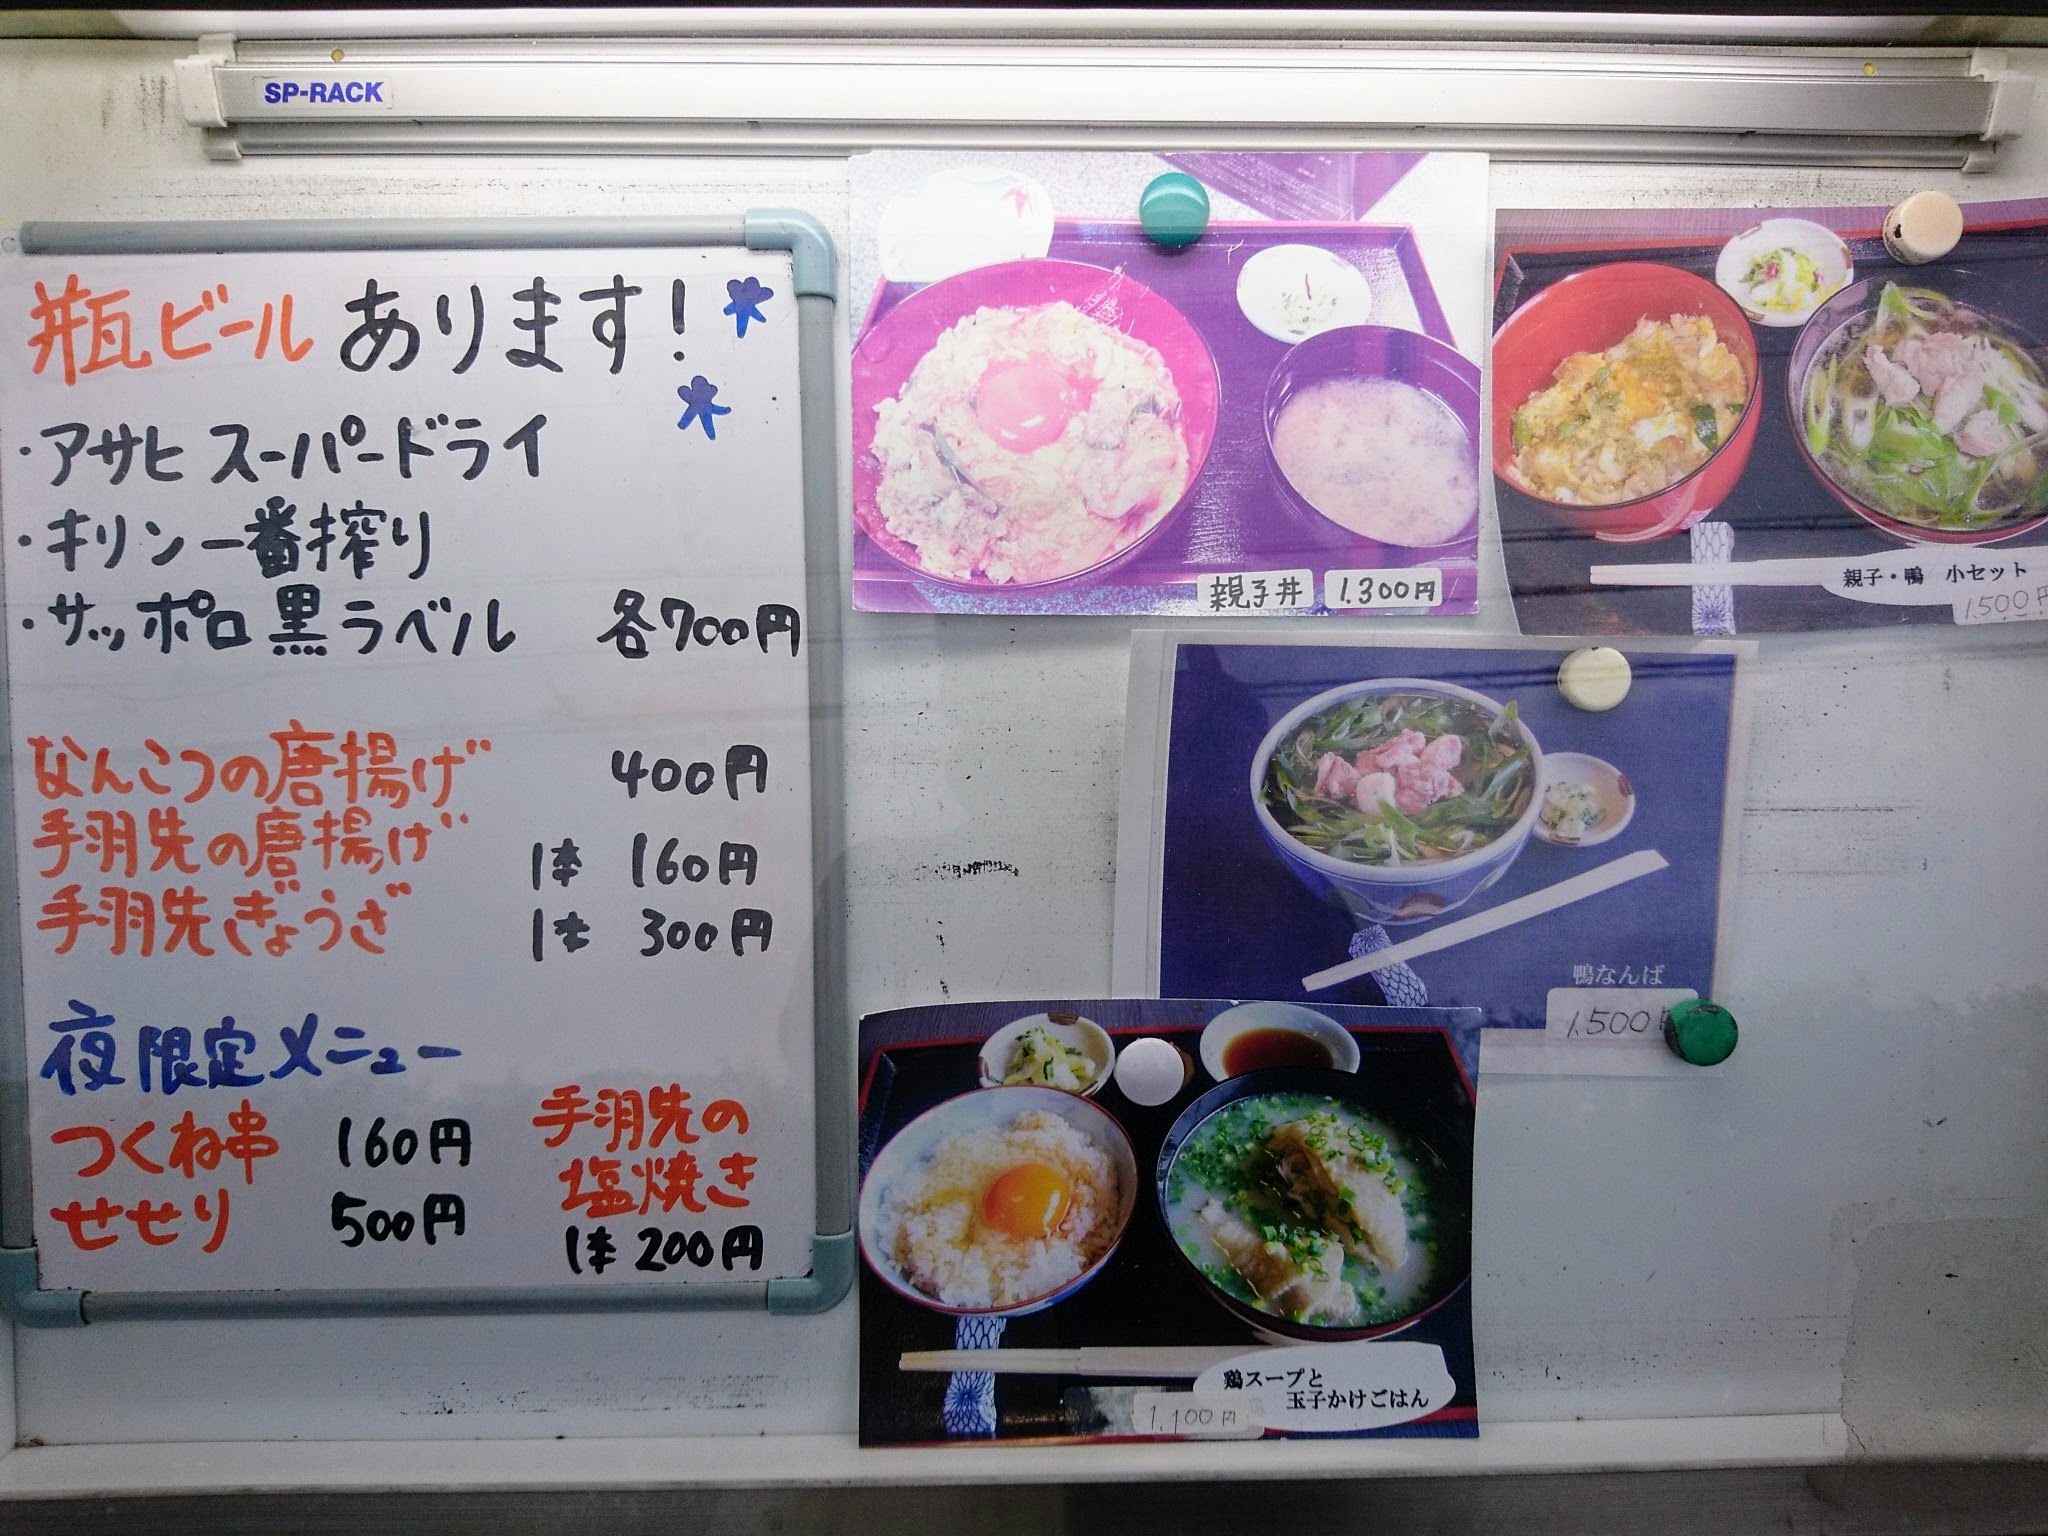 SP-RACK
瓶ビールあります!
・アサヒ スーパードライ
・キリン一番搾り
・サッポロ黒ラベル 各700円
なんこつの唐揚げ 400円
手羽先の唐揚げ 1本 160円
手羽先ぎょうざ 1本 300円
夜限定メニュー
つくね串 160円
せせり 500円
手羽先の
塩焼き
1本 200円
親子丼 1.300円
親子・鴨 小セット
1500円
鴨なんば
1.500円
鶏スープと
玉子かけごはん
1.100円